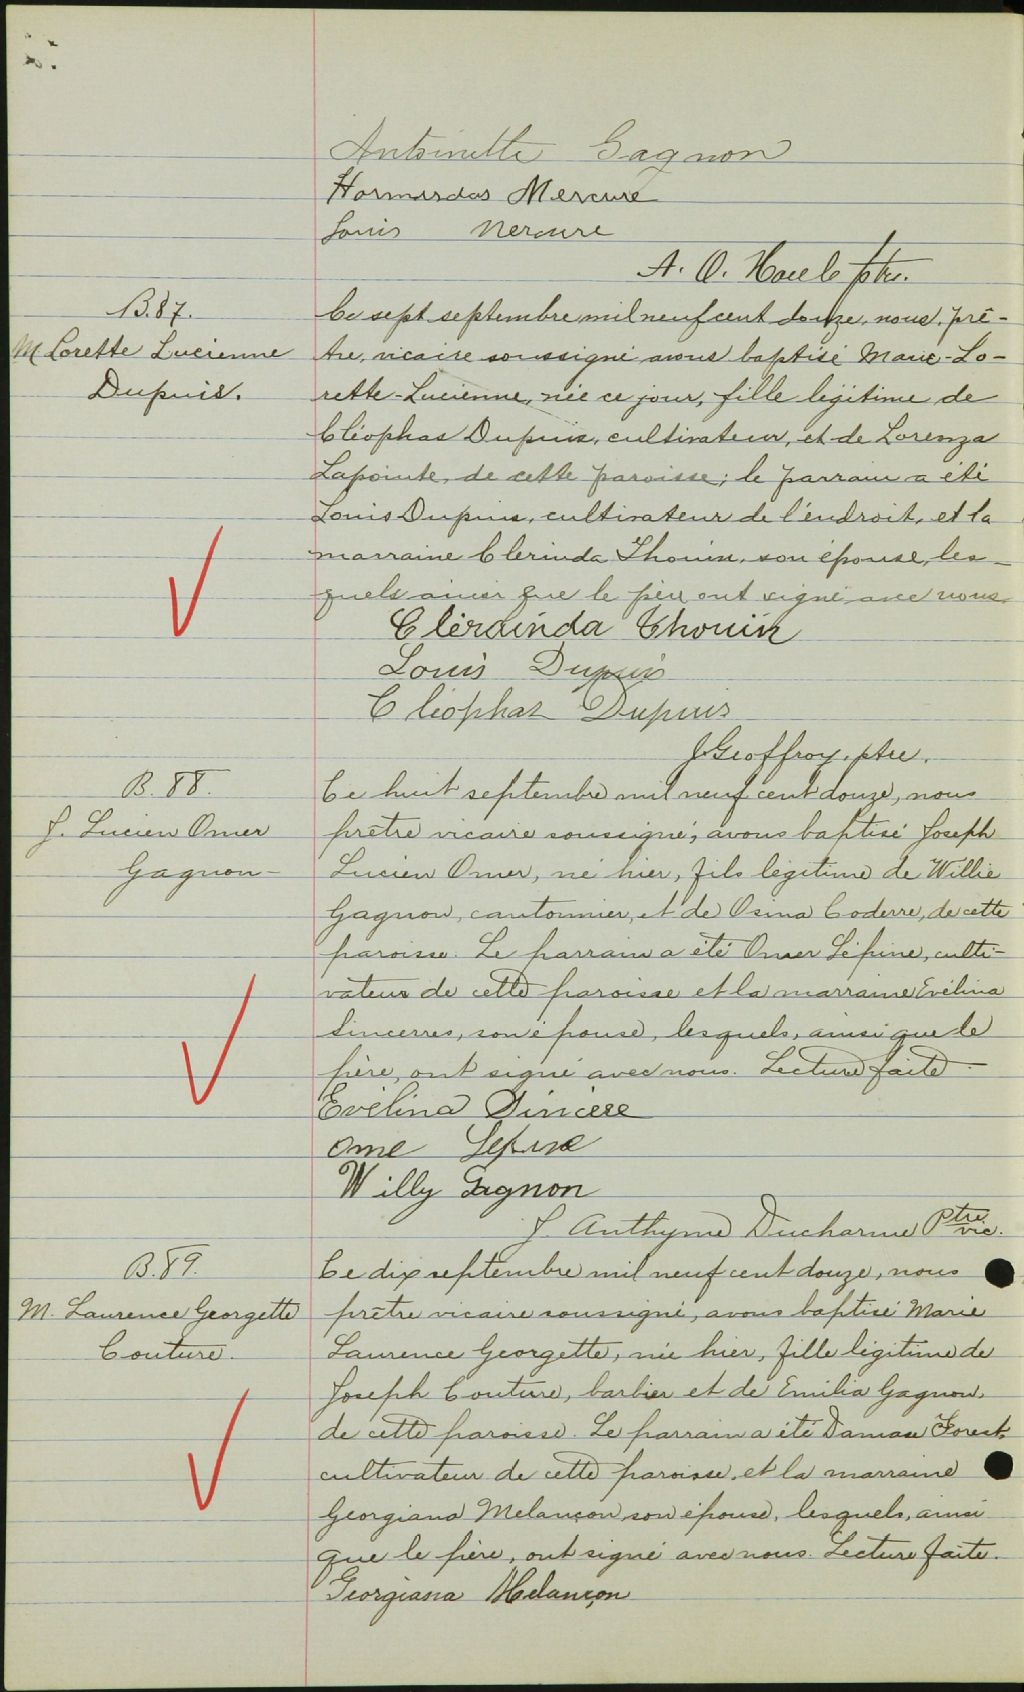 Antoinette Gagnon
Hormisdas Mercure
Louis Mercure
A. O. Houle ptre.
B. 87.
M Lorette Lucienne
Dupuis.
Ce sept septembre mil neuf cent douze, nous, prê-
tre, vicaire soussigné avons baptisé Marie-Lo-
rette-Lucienne, née ce jour, fille légitime de
Cléophas Dupuis, cultivateur, et de Lorenza
Lapointe, de cette paroisse; le parrain a été
Louis Dupuis, cultivateur de l'endroit, et la
marraine Clerinda Thouin, son épouse, les-
quels ainsi que le père ont signé avec nous.
Clérainda Thouin
Louis Dupuis
Cléophas Dupuis
J. Geoffroy, ptre.
B. 88.
J. Lucien Omer
Gagnon-
Ce huit septembre mil neuf cent douze, nous
prêtre vicaire soussigné, avons baptisé Joseph
Lucien Omer, né hier, fils légitime de Willie
Gagnon, cantonnier, et de Osina Coderre, de cette
paroisse. Le parrain a été Omer Lépine, culti-
vateur de cette paroisse et la marraine Evélina
Sincerres, son épouse, lesquels, ainsi que le
père, ont signé avec nous. Lecture faite-
Evélina Sincère
Ome Lepine
Willy Gagnon
J. Anthyme Ducharme Ptre vic.
B. 89.
M. Laurence Georgette
Couture.
Ce dix septembre mil neuf cent douze, nous
prêtre vicaire soussigné, avons baptisé Marie
Laurence Georgette, née hier, fille légitime de
Joseph Couture, barbier et de Emilia Gagnon,
de cette paroisse. Le parrain a été Damase Forest,
cultivateur de cette paroisse, et la marraine
Georgiana Melançon son épouse, lesquels, ainsi
que le père, ont signé avec nous. Lecture faite.
Georgiana Melançon